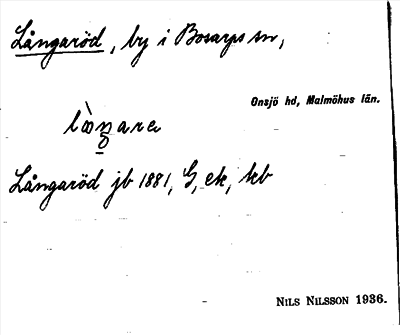 Långaröd, by i Bosarps sn,
Onsjö hd, Malmöhus län.
Långaröd jb 1881, G, ek, kb
NILS NILSSON 1936.